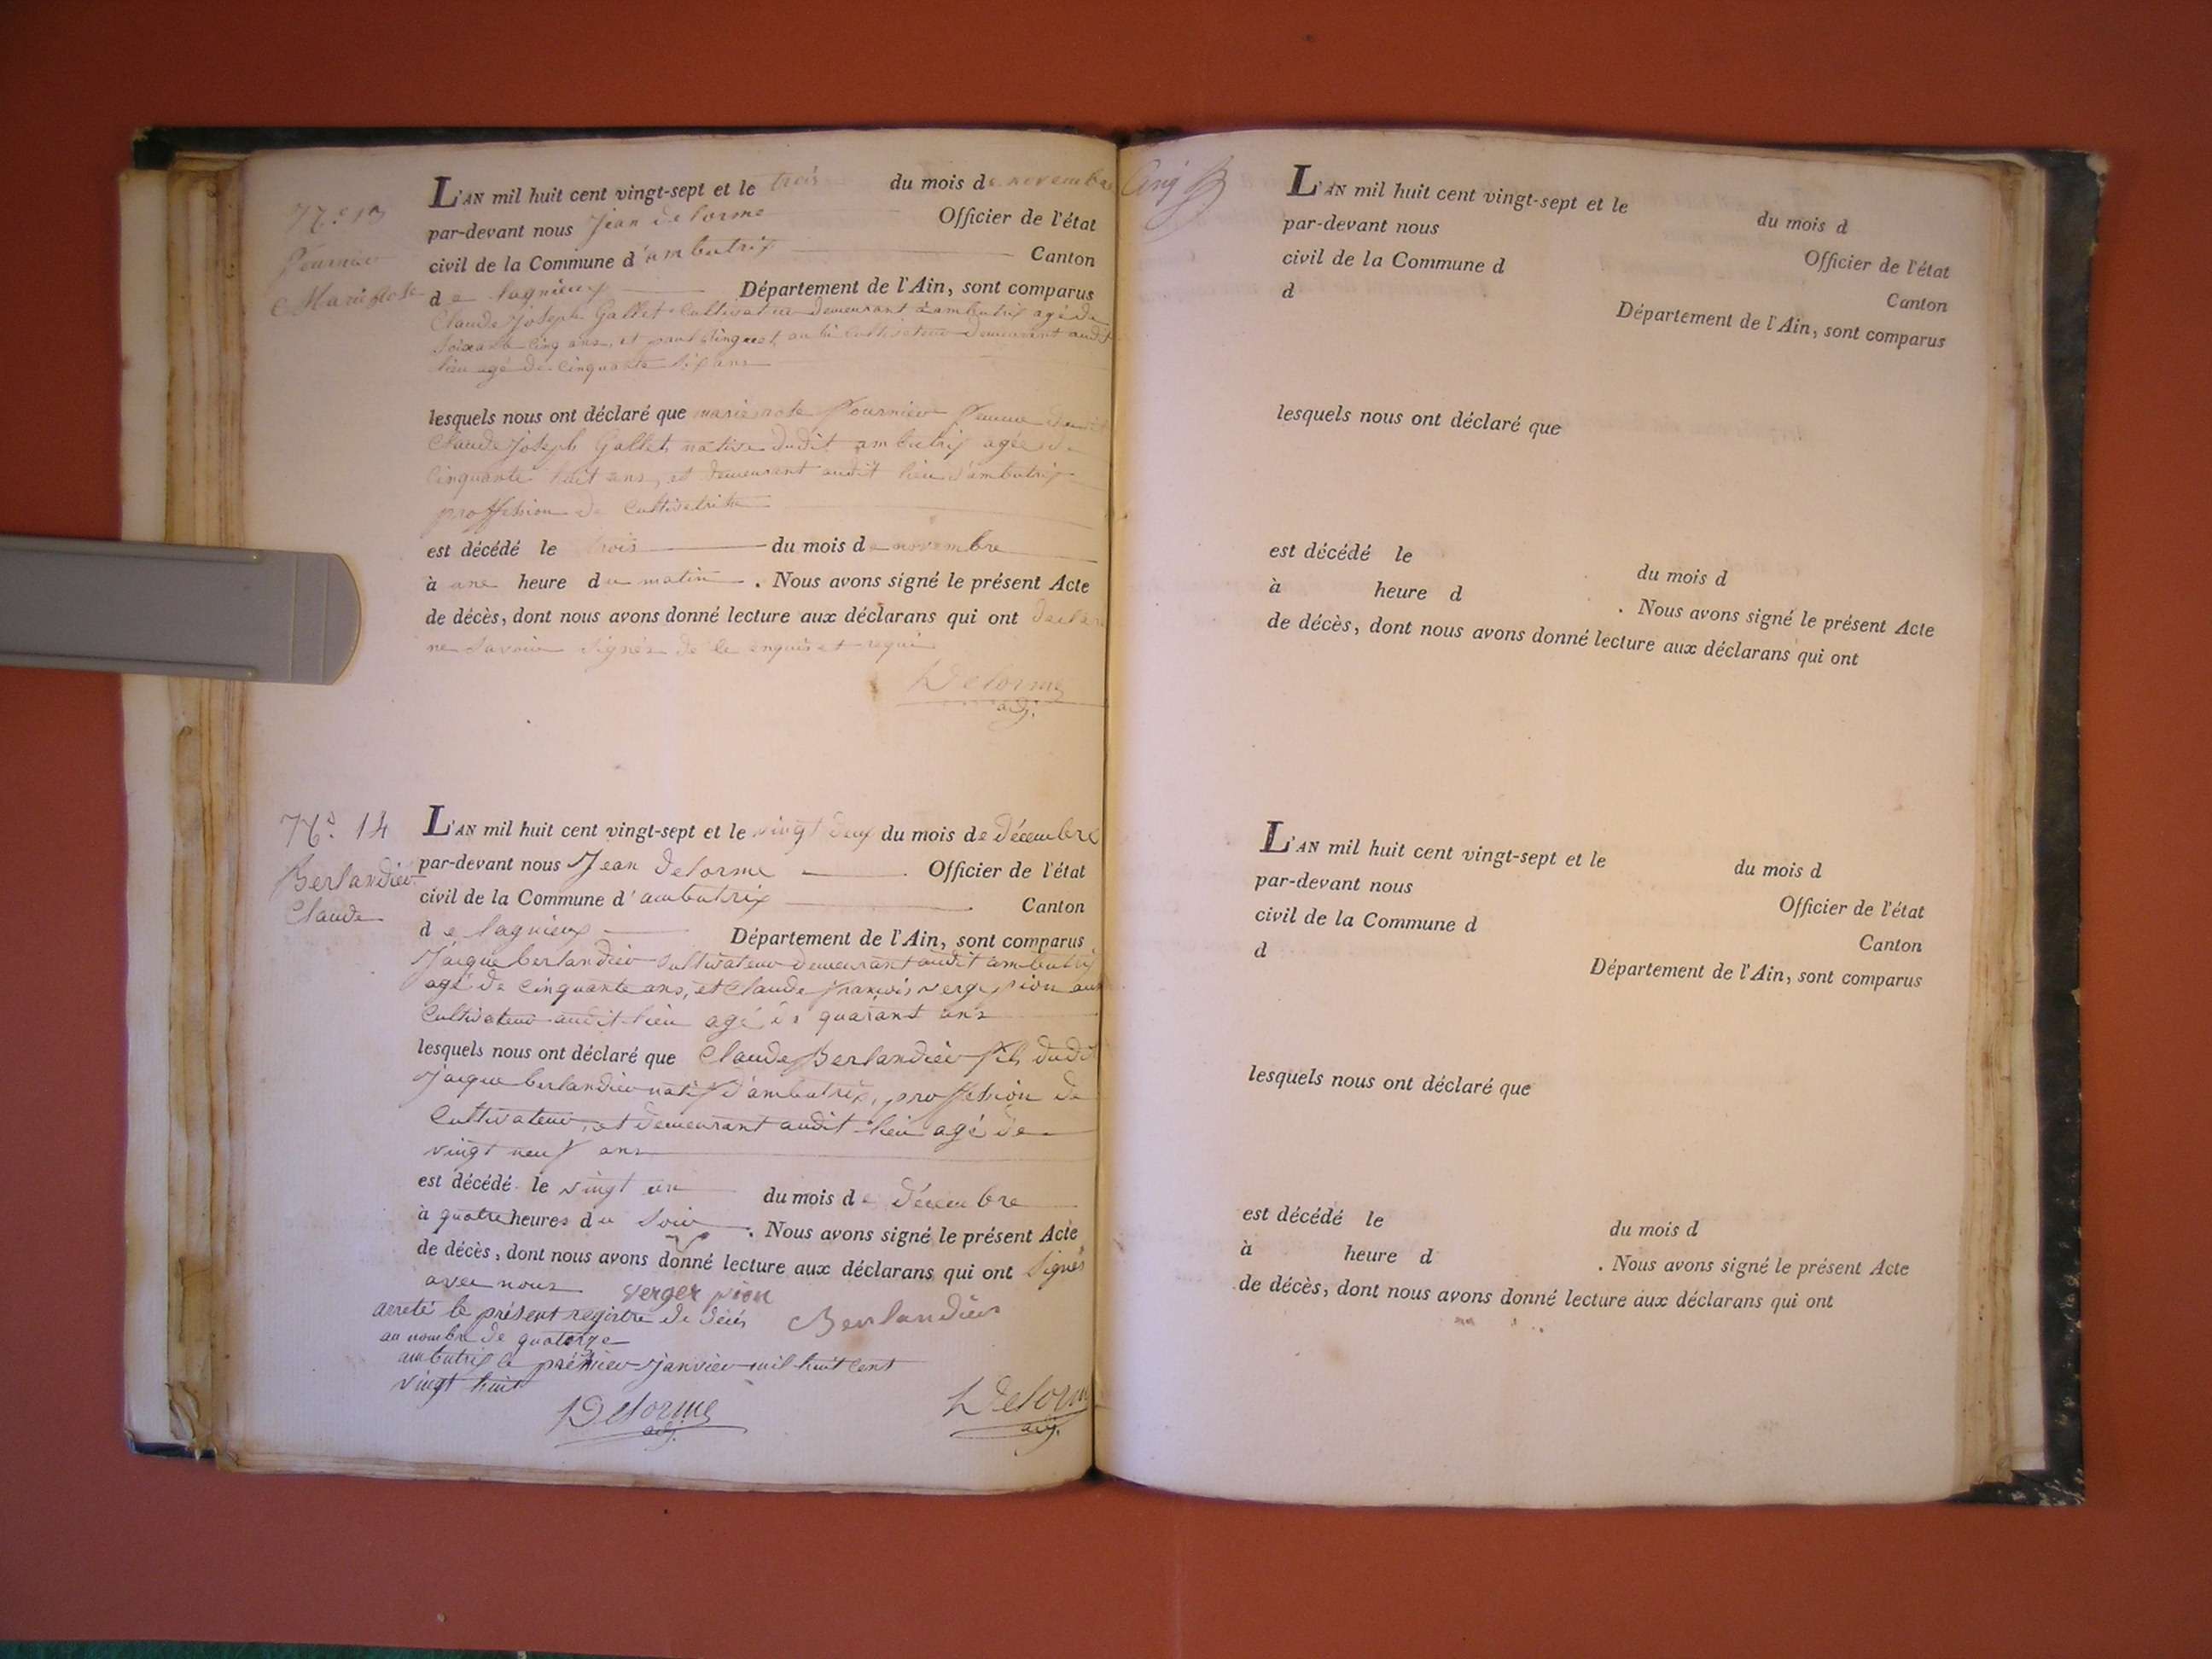 N.° 13
Fournier
Marie Rose
L'AN mil huit cent vingt-sept et le trois du mois de novembre
par-devant nous Jean Delorme Officier de l'état
civil de la Commune d'ambutrix Canton
de lagnieux Département de l'Ain, sont comparus
Claude Joseph Gallet Cultivateur demeurant à ambutrix agé de
Soixante Cinq ans, et aussi Cultivateur demeurant audit
lieu agé de Cinquante Six ans
lesquels nous ont déclaré que marie rose Fournier femme dudit
Claude Joseph Gallet native dudit ambutrix agée de
Cinquante huit ans, et demeurant audit lieu d'ambutrix
proffession de Cultivatrice
est décédé le trois du mois de novembre
à une heure du matin. Nous avons signé le présent Acte
de décès, dont nous avons donné lecture aux déclarans qui ont declaré
ne Savoir Signer de ce enquis et requis
Delorme
adj.
N.° 14
Berlandier
Claude
L'AN mil huit cent vingt-sept et le vingt deux du mois de Décembre
par-devant nous Jean Delorme Officier de l'état
civil de la Commune d'ambutrix Canton
de lagnieux Département de l'Ain, sont comparus
Jacque berlandier Cultivateur demeurant audit ambutrix
agé de Cinquante ans, et Claude françois verger pion aussi
Cultivateur audit lieu agé de quarant ans
lesquels nous ont déclaré que Claude Berlandier fils dudit
Jacque berlandier natif d'ambutrix, proffession de
Cultivateur, et demeurant audit lieu agé de
vingt neuf ans
est décédé le vingt un du mois de Décembre
à quatre heures du Soir. Nous avons signé le présent Acte
de décès, dont nous avons donné lecture aux déclarans qui ont Signés
avec nous verger pion
Berlandier
arreté le présent registre de décés
au nombre de quatorze
ambutrix le premier Janvier mil huit cent
vingt huit
Delorme
adj.
Delorme
adj.
L'AN mil huit cent vingt-sept et le du mois d
par-devant nous Officier de l'état
civil de la Commune d Canton
d Département de l'Ain, sont comparus
lesquels nous ont déclaré que
est décédé le du mois d
à heure d . Nous avons signé le présent Acte
de décès, dont nous avons donné lecture aux déclarans qui ont
L'AN mil huit cent vingt-sept et le du mois d
par-devant nous Officier de l'état
civil de la Commune d Canton
d Département de l'Ain, sont comparus
lesquels nous ont déclaré que
est décédé le du mois d
à heure d . Nous avons signé le présent Acte
de décès, dont nous avons donné lecture aux déclarans qui ont